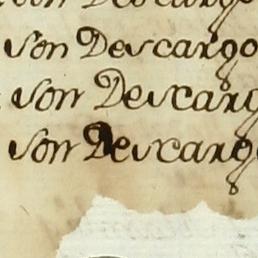 Son Descargo
Son Descargo
Son Descargo
Son Descargo